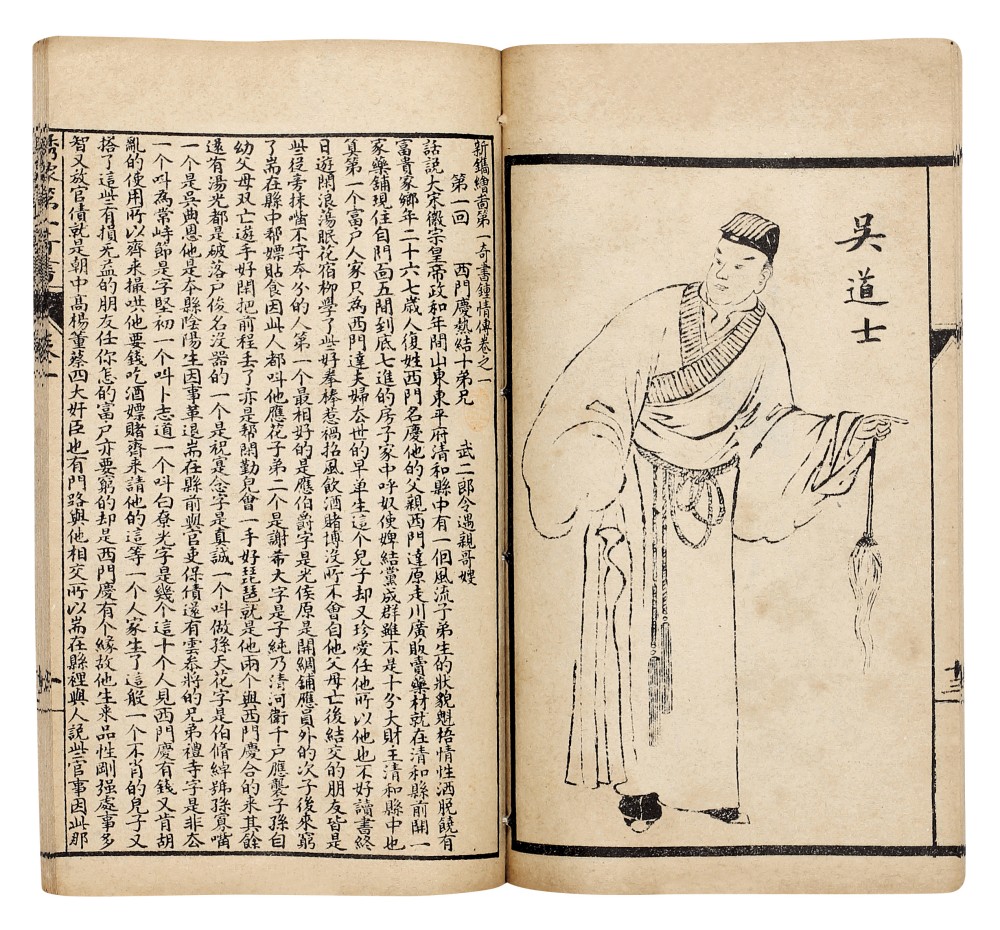 吳道士
新鐫繪啚第一奇書鍾情傳卷之一
第一回 西門慶熱結十弟兄 武二郎令遇親哥嫂
話說大宋徽宗皇帝政和年間山東東平府清和縣中有一個風流子弟生的狀貌魁梧情性洒脫饒有
富貴家鄉年二十六七歲人復姓西門名慶他的父親西門達原走川廣販賣藥材就在清和縣前開一
家藥舖現住自門面五間到底七進的房子家中呼奴使婢結黨成群雖不是十分大財主清和縣中也
算第一个富户人家只為西門達夫婦去世的早单生這個兒子却又珍愛任他所以他也不好讀書終
日遊閑浪蕩眠花宿柳學了些好拳棒惹禍招風飲酒賭博沒所不會自他父母亡後結交的朋友皆是
些從旁抹嘴不守夲分的人第一個最相好的是應伯爵字是光侯原是開綢舖應員外的次子後來窮
了耑在縣中帮嫖貼食因此人都呌他應花子第二個是謝希大字是子純乃清河衛千户應襲子孫自
幼父母双亡遊手好閑把前程丢了亦是帮閑勤兒會一手好琵琶就是他兩个與西門慶合的來其餘
還有湯光都是破落户後名沒器的一個是祝寔念字是真誠一个呌做孫天花字是伯脩綽號孫寡嘴
一个是吳典恩他是夲縣陰陽生因事革退耑在縣前與官吏保債還有雲叅將的兄弟禮寺字是非公
一个呌為常峙節是字堅初一个呌卜志道一个呌白賚光字是幾个這十個人見西門慶有錢又肯胡
亂的使用所以齊来撮哄他要錢吃酒嫖賭齊来請他的這等一个人家生了這般一个不肖的兒子又
搭了這些有損旡益的朋友任你怎的富户亦要窮的却是西門慶有個緣故他生来品性剛强處事多
智又放官債就是朝中髙楊董蔡四大奸臣也有門路與他相交所以耑在縣裡與人說些官事因此那